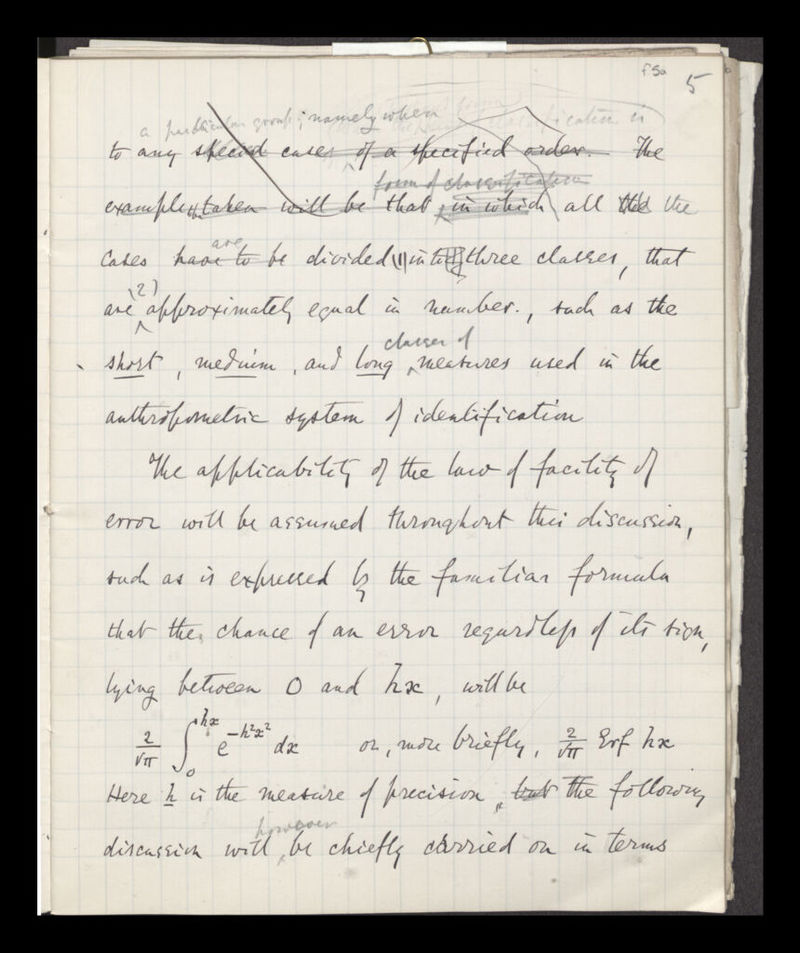 f5a 5
a particular group; namely when classification is
to any special cases of a specified order. The
form of classification
examples taken will be that in which all the
are
cases have to be divided into three classes, that
(2)
are approximately equal in number., such as the
classes of
short, medium, and long measures used in the
anthropometric system of identification
The applicability of the law of facility of
error will be assumed throughout this discussion,
such as is expressed by the familiar formula
that the chance of an error regardless of its sign,
lying between 0 and hx, will be
2/√π ∫₀ʰˣ e^-h²x² dx or, more briefly, 2/√π Erf hx
Here h is the measure of precision, but the following
however
discussion will be chiefly carried on in terms